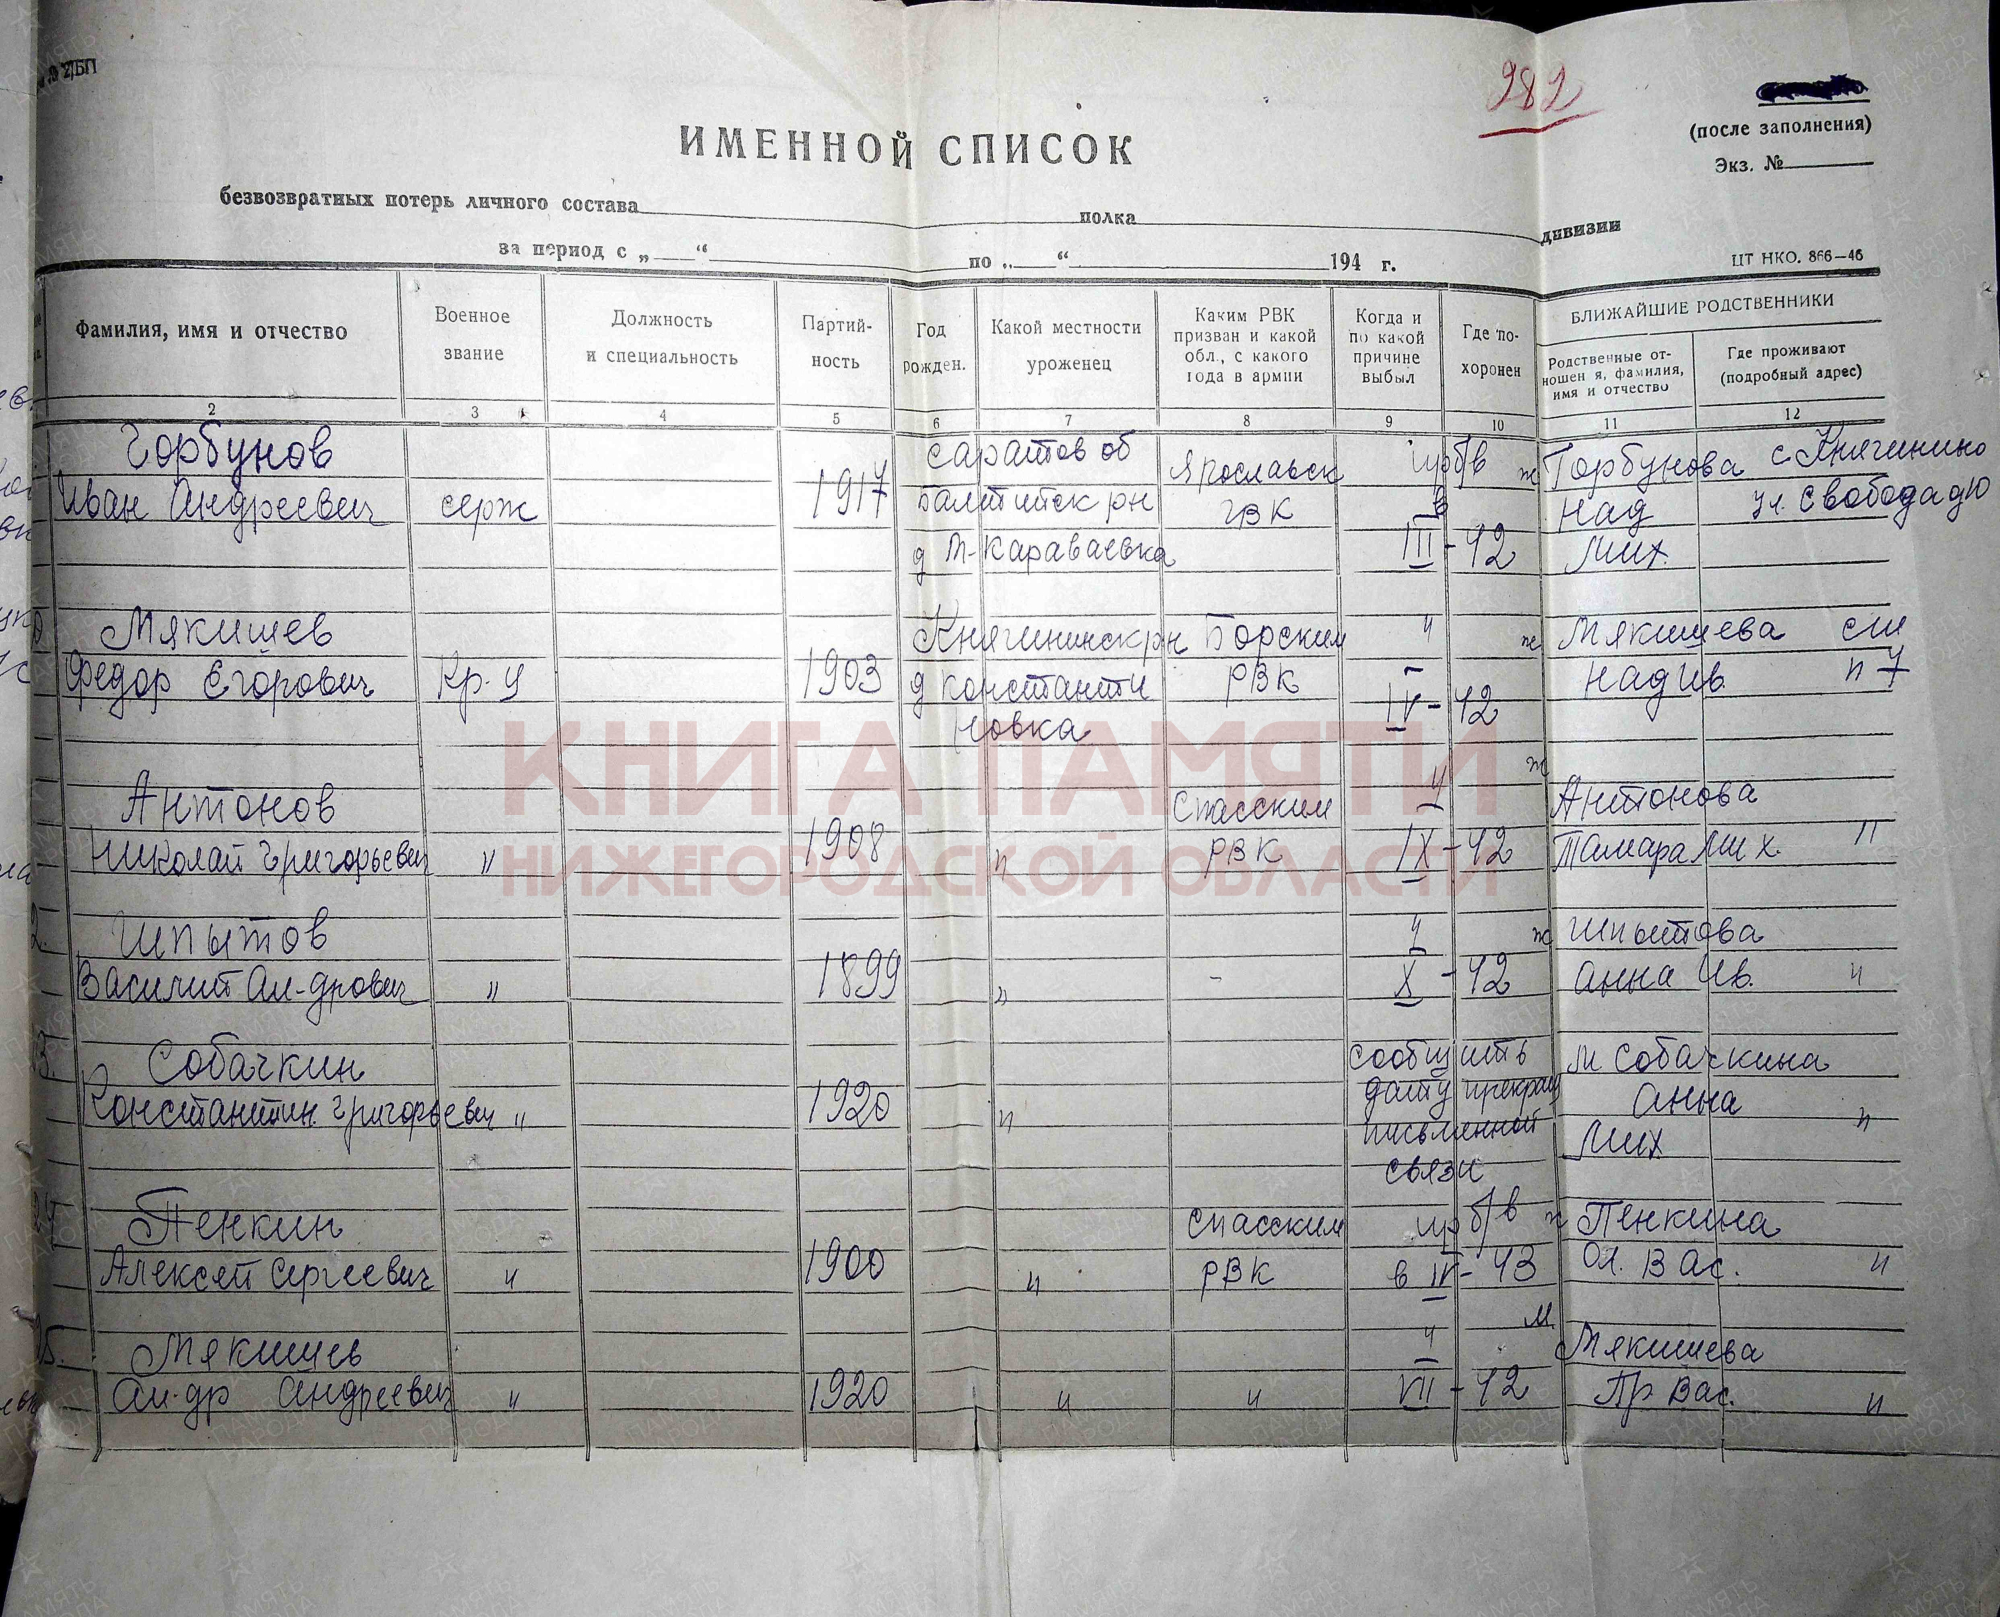 282
(после заполнения)
Экз. №
ИМЕННОЙ СПИСОК
безвозвратных потерь личного состава полка дивизии
за период с „ “ по „ “ 194 г.
ЦТ НКО. 866—46
Фамилия, имя и отчество
Военное звание
Должность и специальность
Партий-
ность
Год рожден.
Какой местности уроженец
Каким РВК
призван и какой
обл., с какого
года в армии
Когда и
по какой
причине
выбыл
Где по-
хоронен
БЛИЖАЙШИЕ РОДСТВЕННИКИ
Родственные от-
ношен я, фамилия,
имя и отчество
Где проживают
(подробный адрес)
2 3 4 5 6 7 8 9 10 11 12
Горбунов Саратов об Ярославск пр б/в ж Горбунова с. Княгинино
Иван Андреевич серж 1917 рн ГВК в Над ул. Свобода
д М-Караваевка III-42 Мих.
Мякишев Княгининск рн Борским " ж Мякишева см
Федор Егорович Кр-ц 1903 д константи РВК IV-42 Над Ив. п 7
новка
Антонов Спасским " ж Антонова
Николай Григорьевич " 1908 " РВК IX-42 Тамара Мих. "
Шпытов " ж Шпытова
Василий Ал-дрович " 1899 " - X-42 Анна Ив. "
Собачкин сообщить М Собачкина
Константин Григорьевич " 1920 " дату прекращ Анна "
письменной Мих
связи
Пенкин Спасским пр б/в ж Пенкина
Алексей Сергеевич " 1900 " РВК в IV-43 Ол. Вас. "
Мякишев " М. Мякишева
Ал-др Андреевич " 1920 " " VII-42 Пр Вас. "
КНИГА ПАМЯТИ
НИЖЕГОРОДСКОЙ ОБЛАСТИ